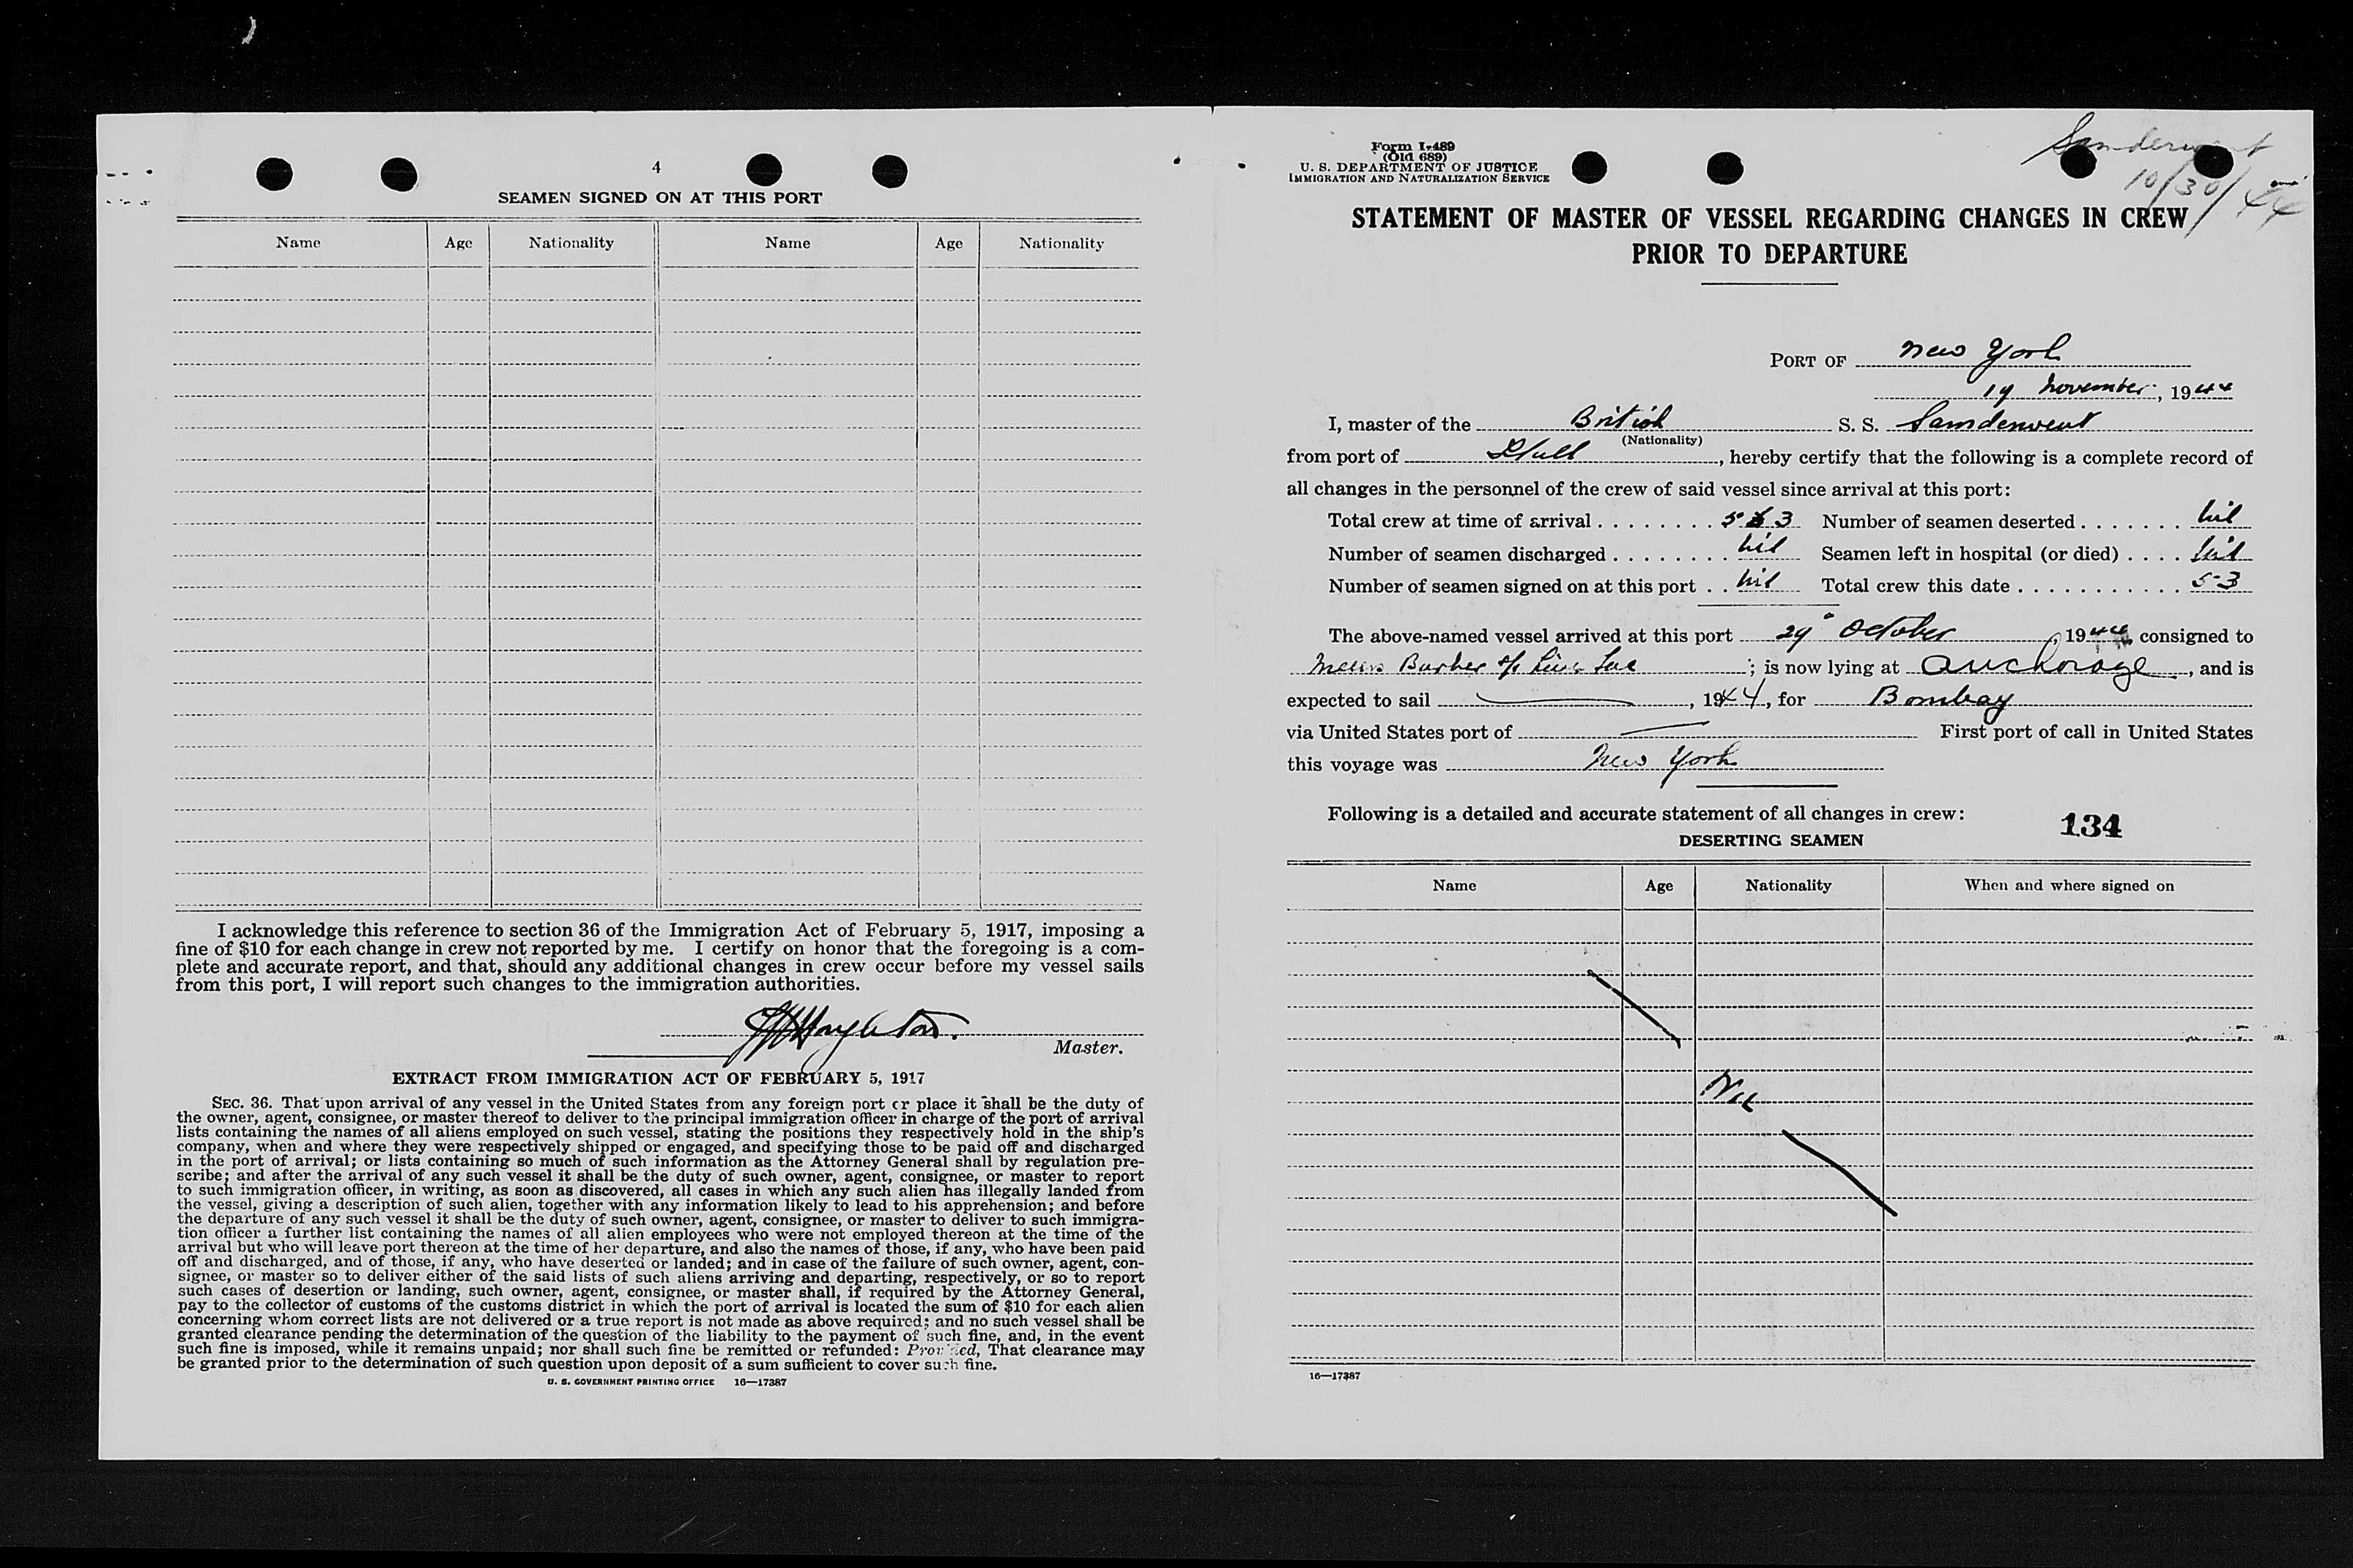 4
SEAMEN SIGNED ON AT THIS PORT
Name Age Nationality Name Age Nationality
I acknowledge this reference to section 36 of the Immigration Act of February 5, 1917, imposing a
fine of $10 for each change in crew not reported by me. I certify on honor that the foregoing is a com-
plete and accurate report, and that, should any additional changes in crew occur before my vessel sails
from this port, I will report such changes to the immigration authorities.
Master.
EXTRACT FROM IMMIGRATION ACT OF FEBRUARY 5, 1917
SEC. 36. That upon arrival of any vessel in the United States from any foreign port or place it shall be the duty of
the owner, agent, consignee, or master thereof to deliver to the principal immigration officer in charge of the port of arrival
lists containing the names of all aliens employed on such vessel, stating the positions they respectively hold in the ship's
company, when and where they were respectively shipped or engaged, and specifying those to be paid off and discharged
in the port of arrival; or lists containing so much of such information as the Attorney General shall by regulation pre-
scribe; and after the arrival of any such vessel it shall be the duty of such owner, agent, consignee, or master to report
to such immigration officer, in writing, as soon as discovered, all cases in which any such alien has illegally landed from
the vessel, giving a description of such alien, together with any information likely to lead to his apprehension; and before
the departure of any such vessel it shall be the duty of such owner, agent, consignee, or master to deliver to such immigra-
tion officer a further list containing the names of all alien employees who were not employed thereon at the time of the
arrival but who will leave port thereon at the time of her departure, and also the names of those, if any, who have been paid
off and discharged, and of those, if any, who have deserted or landed; and in case of the failure of such owner, agent, con-
signee, or master so to deliver either of the said lists of such aliens arriving and departing, respectively, or so to report
such cases of desertion or landing, such owner, agent, consignee, or master shall, if required by the Attorney General,
pay to the collector of customs of the customs district in which the port of arrival is located the sum of $10 for each alien
concerning whom correct lists are not delivered or a true report is not made as above required; and no such vessel shall be
granted clearance pending the determination of the question of the liability to the payment of such fine, and, in the event
such fine is imposed, while it remains unpaid; nor shall such fine be remitted or refunded: Provided, That clearance may
be granted prior to the determination of such question upon deposit of a sum sufficient to cover such fine.
U. S. GOVERNMENT PRINTING OFFICE 16—17387
Form I-489
(Old 689)
U. S. DEPARTMENT OF JUSTICE
IMMIGRATION AND NATURALIZATION SERVICE
Samderwent
10/30/44
STATEMENT OF MASTER OF VESSEL REGARDING CHANGES IN CREW
PRIOR TO DEPARTURE
PORT OF New York
November, 1944
I, master of the British S. S. Samderwent
(Nationality)
from port of Hull, hereby certify that the following is a complete record of
all changes in the personnel of the crew of said vessel since arrival at this port:
Total crew at time of arrival . . . . . . . . 53 Number of seamen deserted . . . . . . . nil
Number of seamen discharged . . . . . . . . nil Seamen left in hospital (or died) . . . . nil
Number of seamen signed on at this port . . nil Total crew this date . . . . . . . . . . . . 53
The above-named vessel arrived at this port 29 October, 1944, consigned to
Messrs Barber Line Inc; is now lying at anchorage, and is
expected to sail , 1944, for Bombay
via United States port of First port of call in United States
this voyage was New York
Following is a detailed and accurate statement of all changes in crew:
134
DESERTING SEAMEN
Name Age Nationality When and where signed on
Nil
16—17387